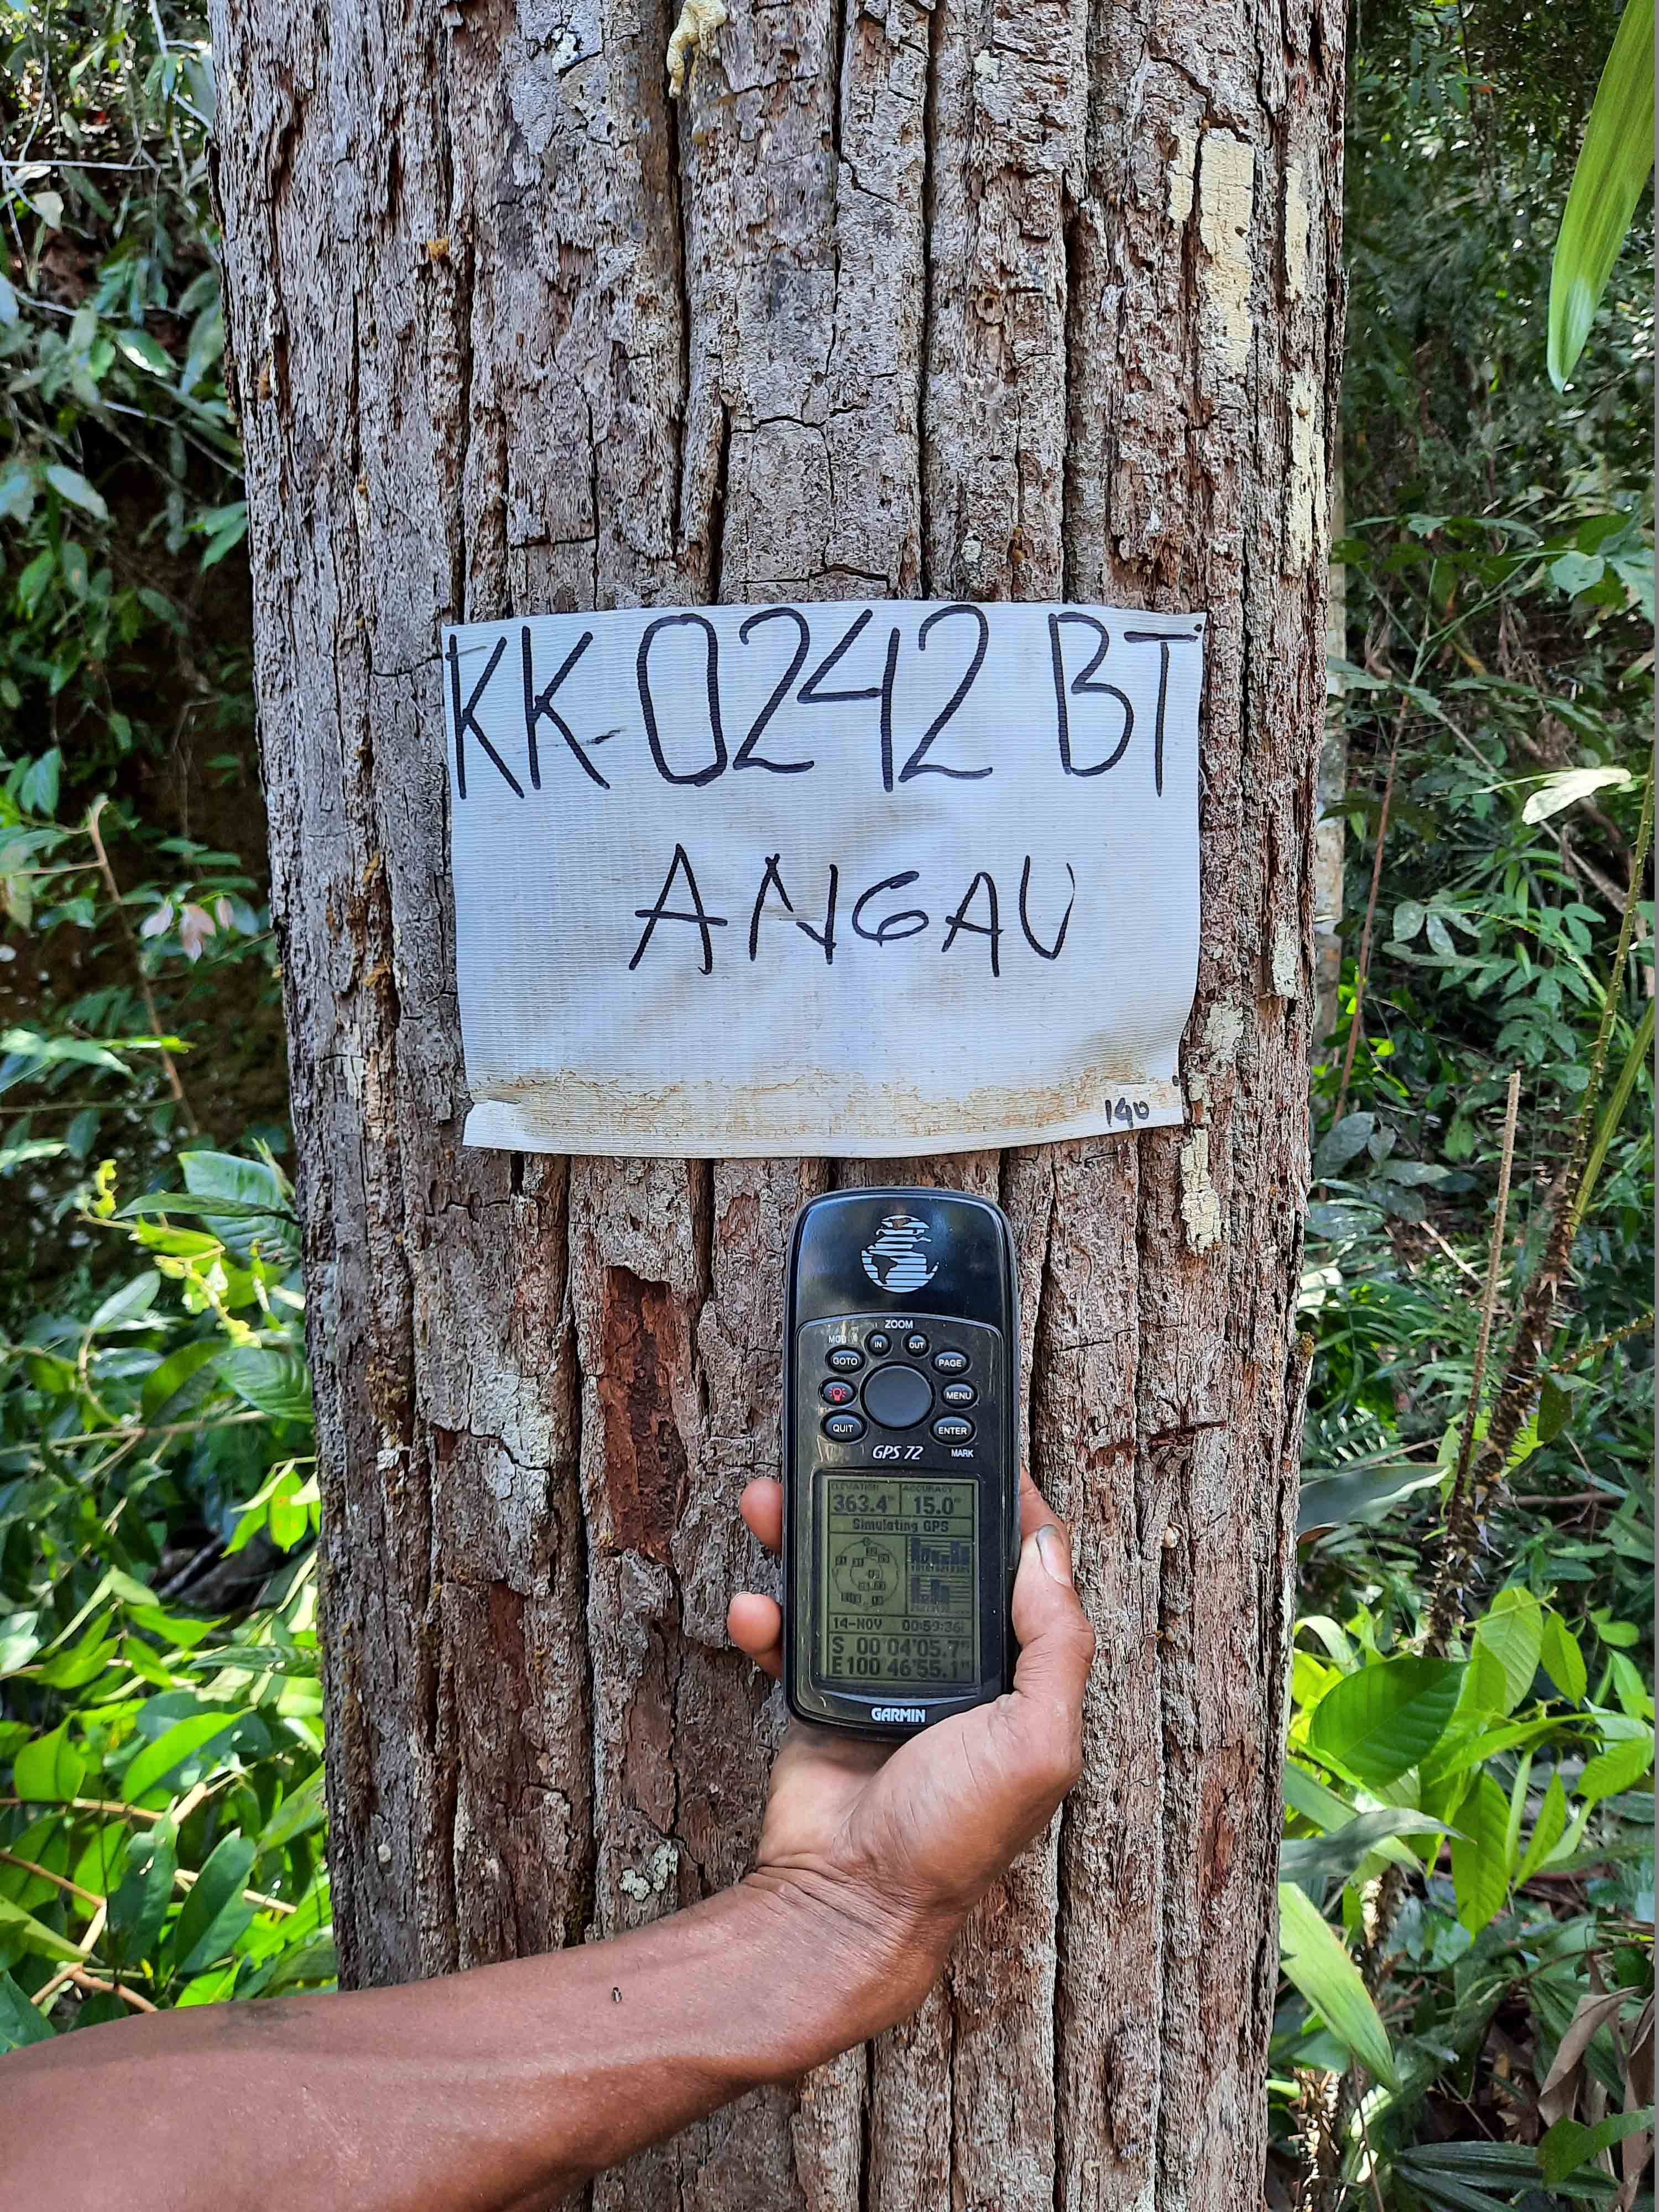 KK-0242 BT
ANGAU
140
ZOOM
IN OUT
GOTO PAGE
MENU
QUIT ENTER
GPS 72 MARK
ELEVATION ACCURACY
363.4 15.0
Simulating GPS
14-NOV 00:59:36
S 00°04'05.7"
E100°46'55.1"
GARMIN